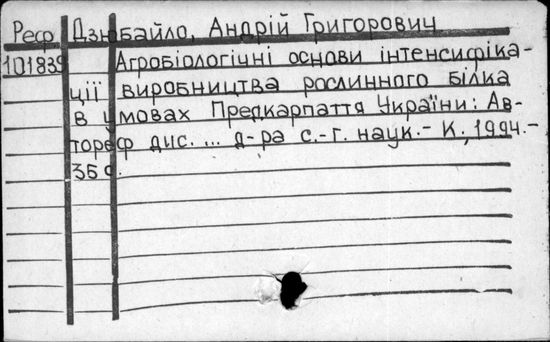 Реф Дзюбайло, Андрій Григорович
101839 Агробіологічні основи інтенсифіка-
ції виробництва рослинного білка
в умовах Предкарпаття України: Ав-
тореф дис. ... д-ра с.-г. наук.- К., 1994.-
35 с.